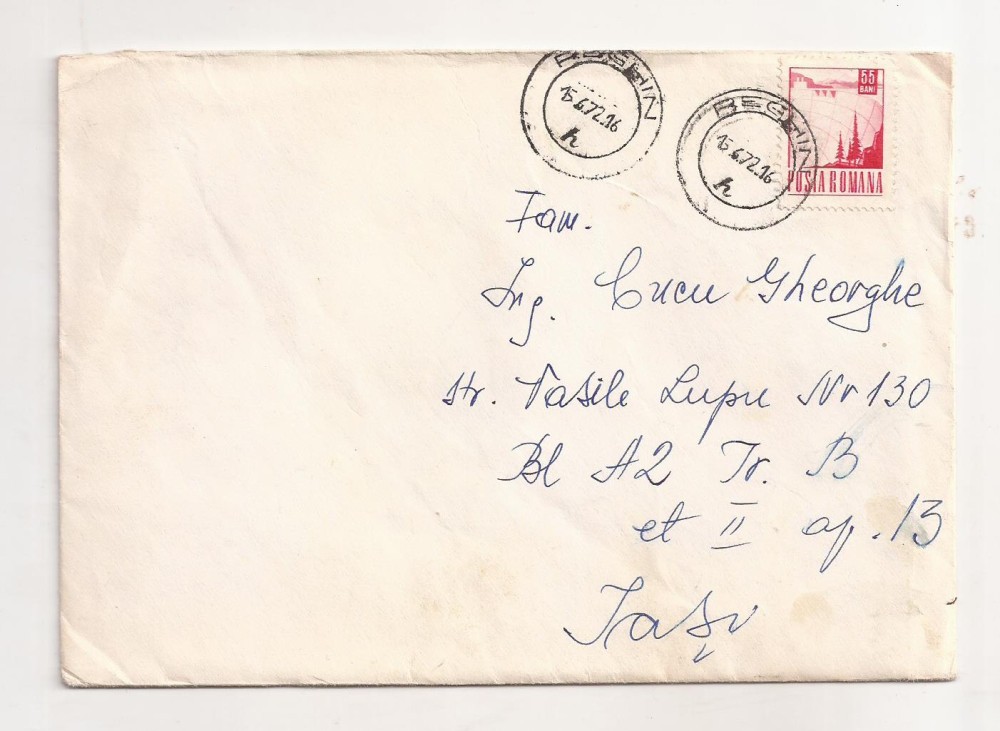 BEGHIN
15.6.72.16
h
BEGHIN
15.6.72.16
h
55
BANI
POSTA ROMANA
Fam.
Ing. Cucu Gheorghe
str. Vasile Lupu Nr 130
Bl A2 Tr. B
et II ap. 13
Iași